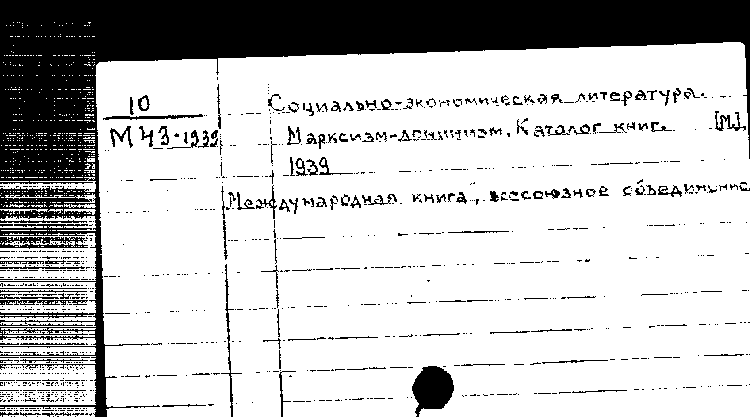 10
М43-1939
Социально-экономическая литература.
Марксизм-ленинизм. Каталог книг. [М],
1939
Международная книга, всесоюзное объединение